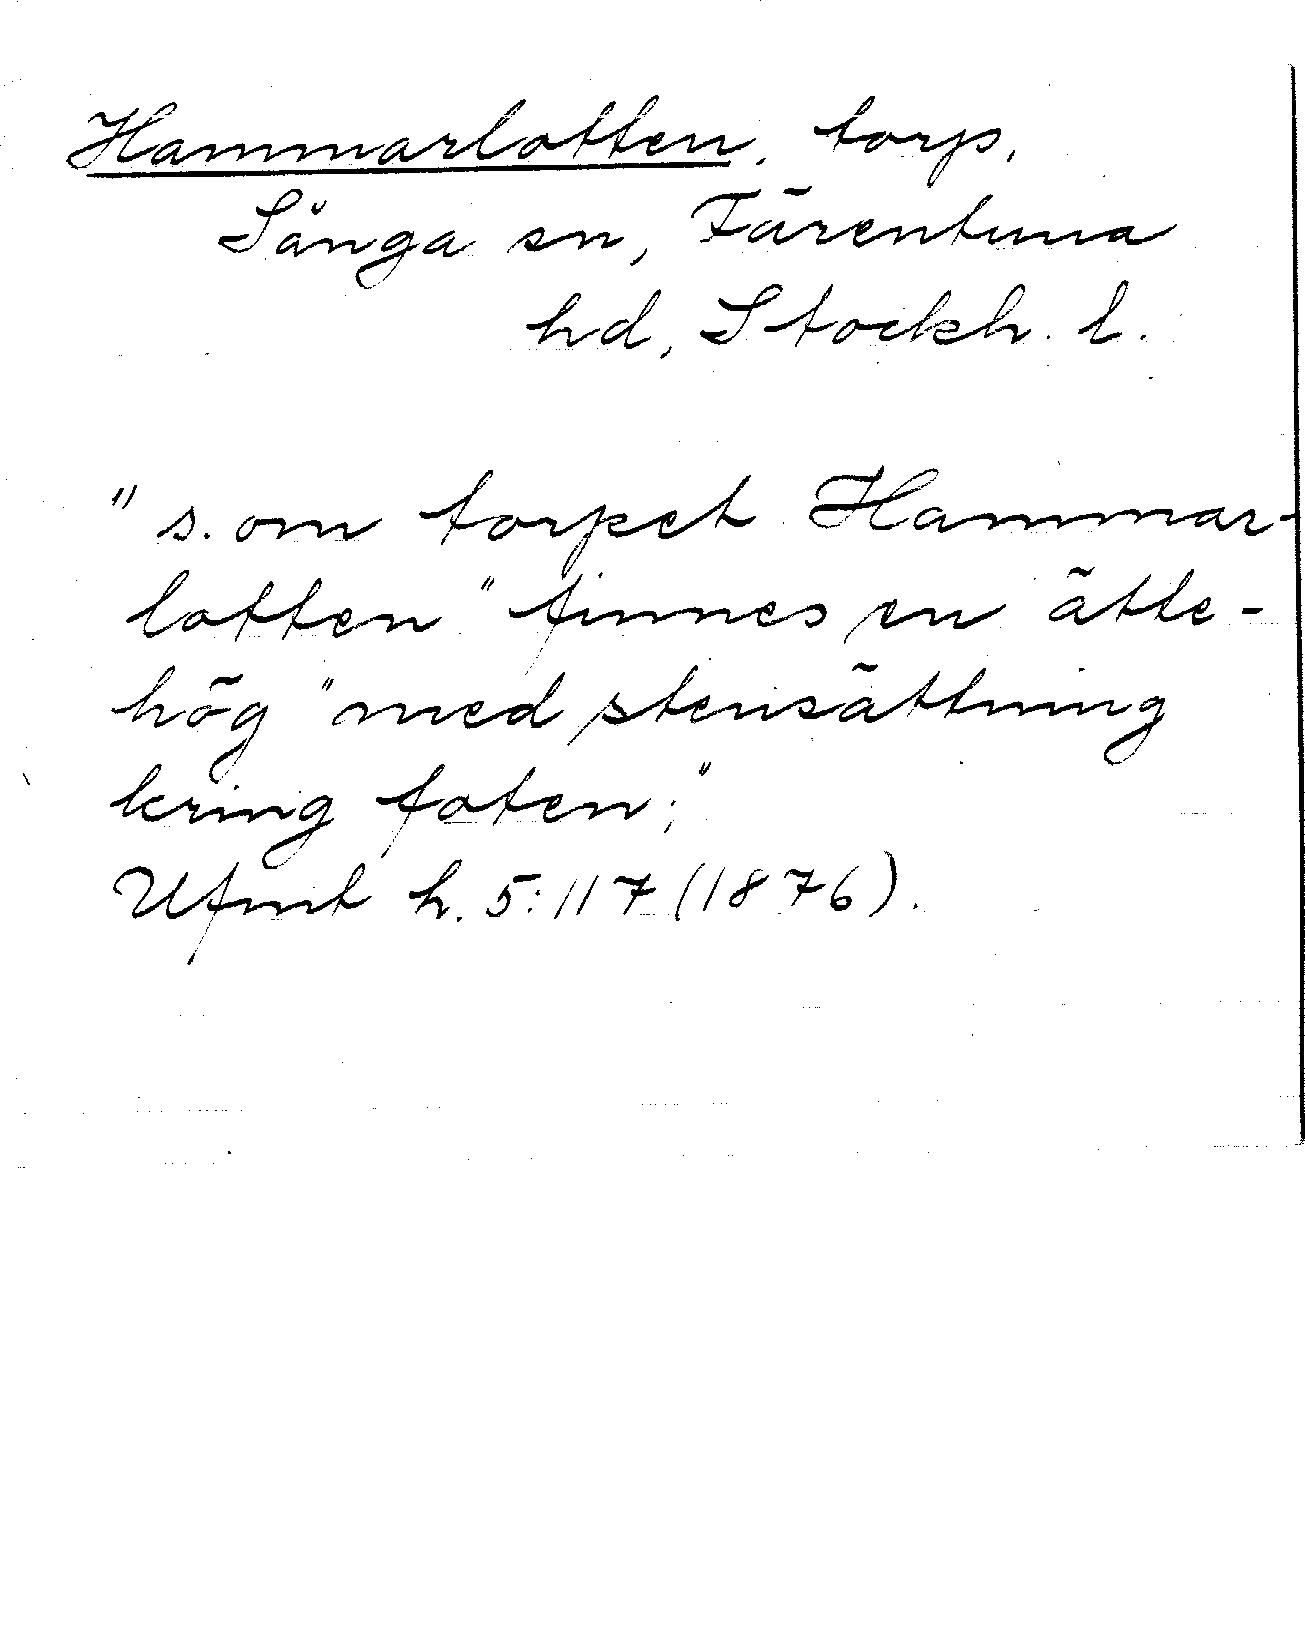 Hammarlotten, torp,
Sånga sn, Färentuna
hd, Stockh. l.
"s. om torpet Hammar-
lotten" finnes en ätte-
hög "med stensättning
kring foten;"
Ufmt h. 5:117 (1876).